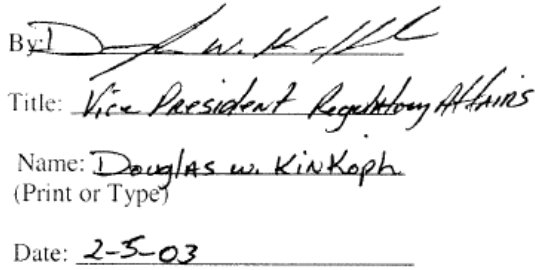 By: D W. K
Title: Vice President Regulatory Affairs
Name: Douglas W. Kinkoph
(Print or Type)
Date: 2-5-03